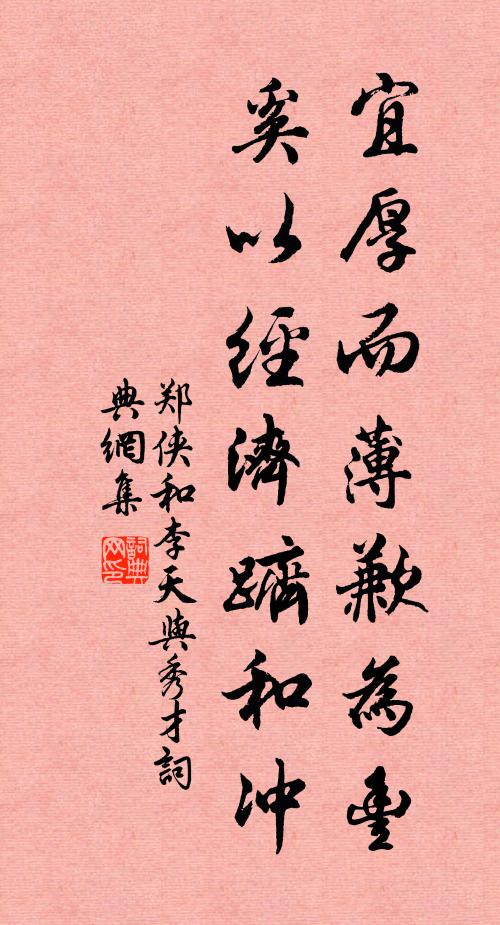 宜厚而薄歉為豊
奚以經濟躋和沖
郑侠和李天與秀才詞
典網集
詞典網印